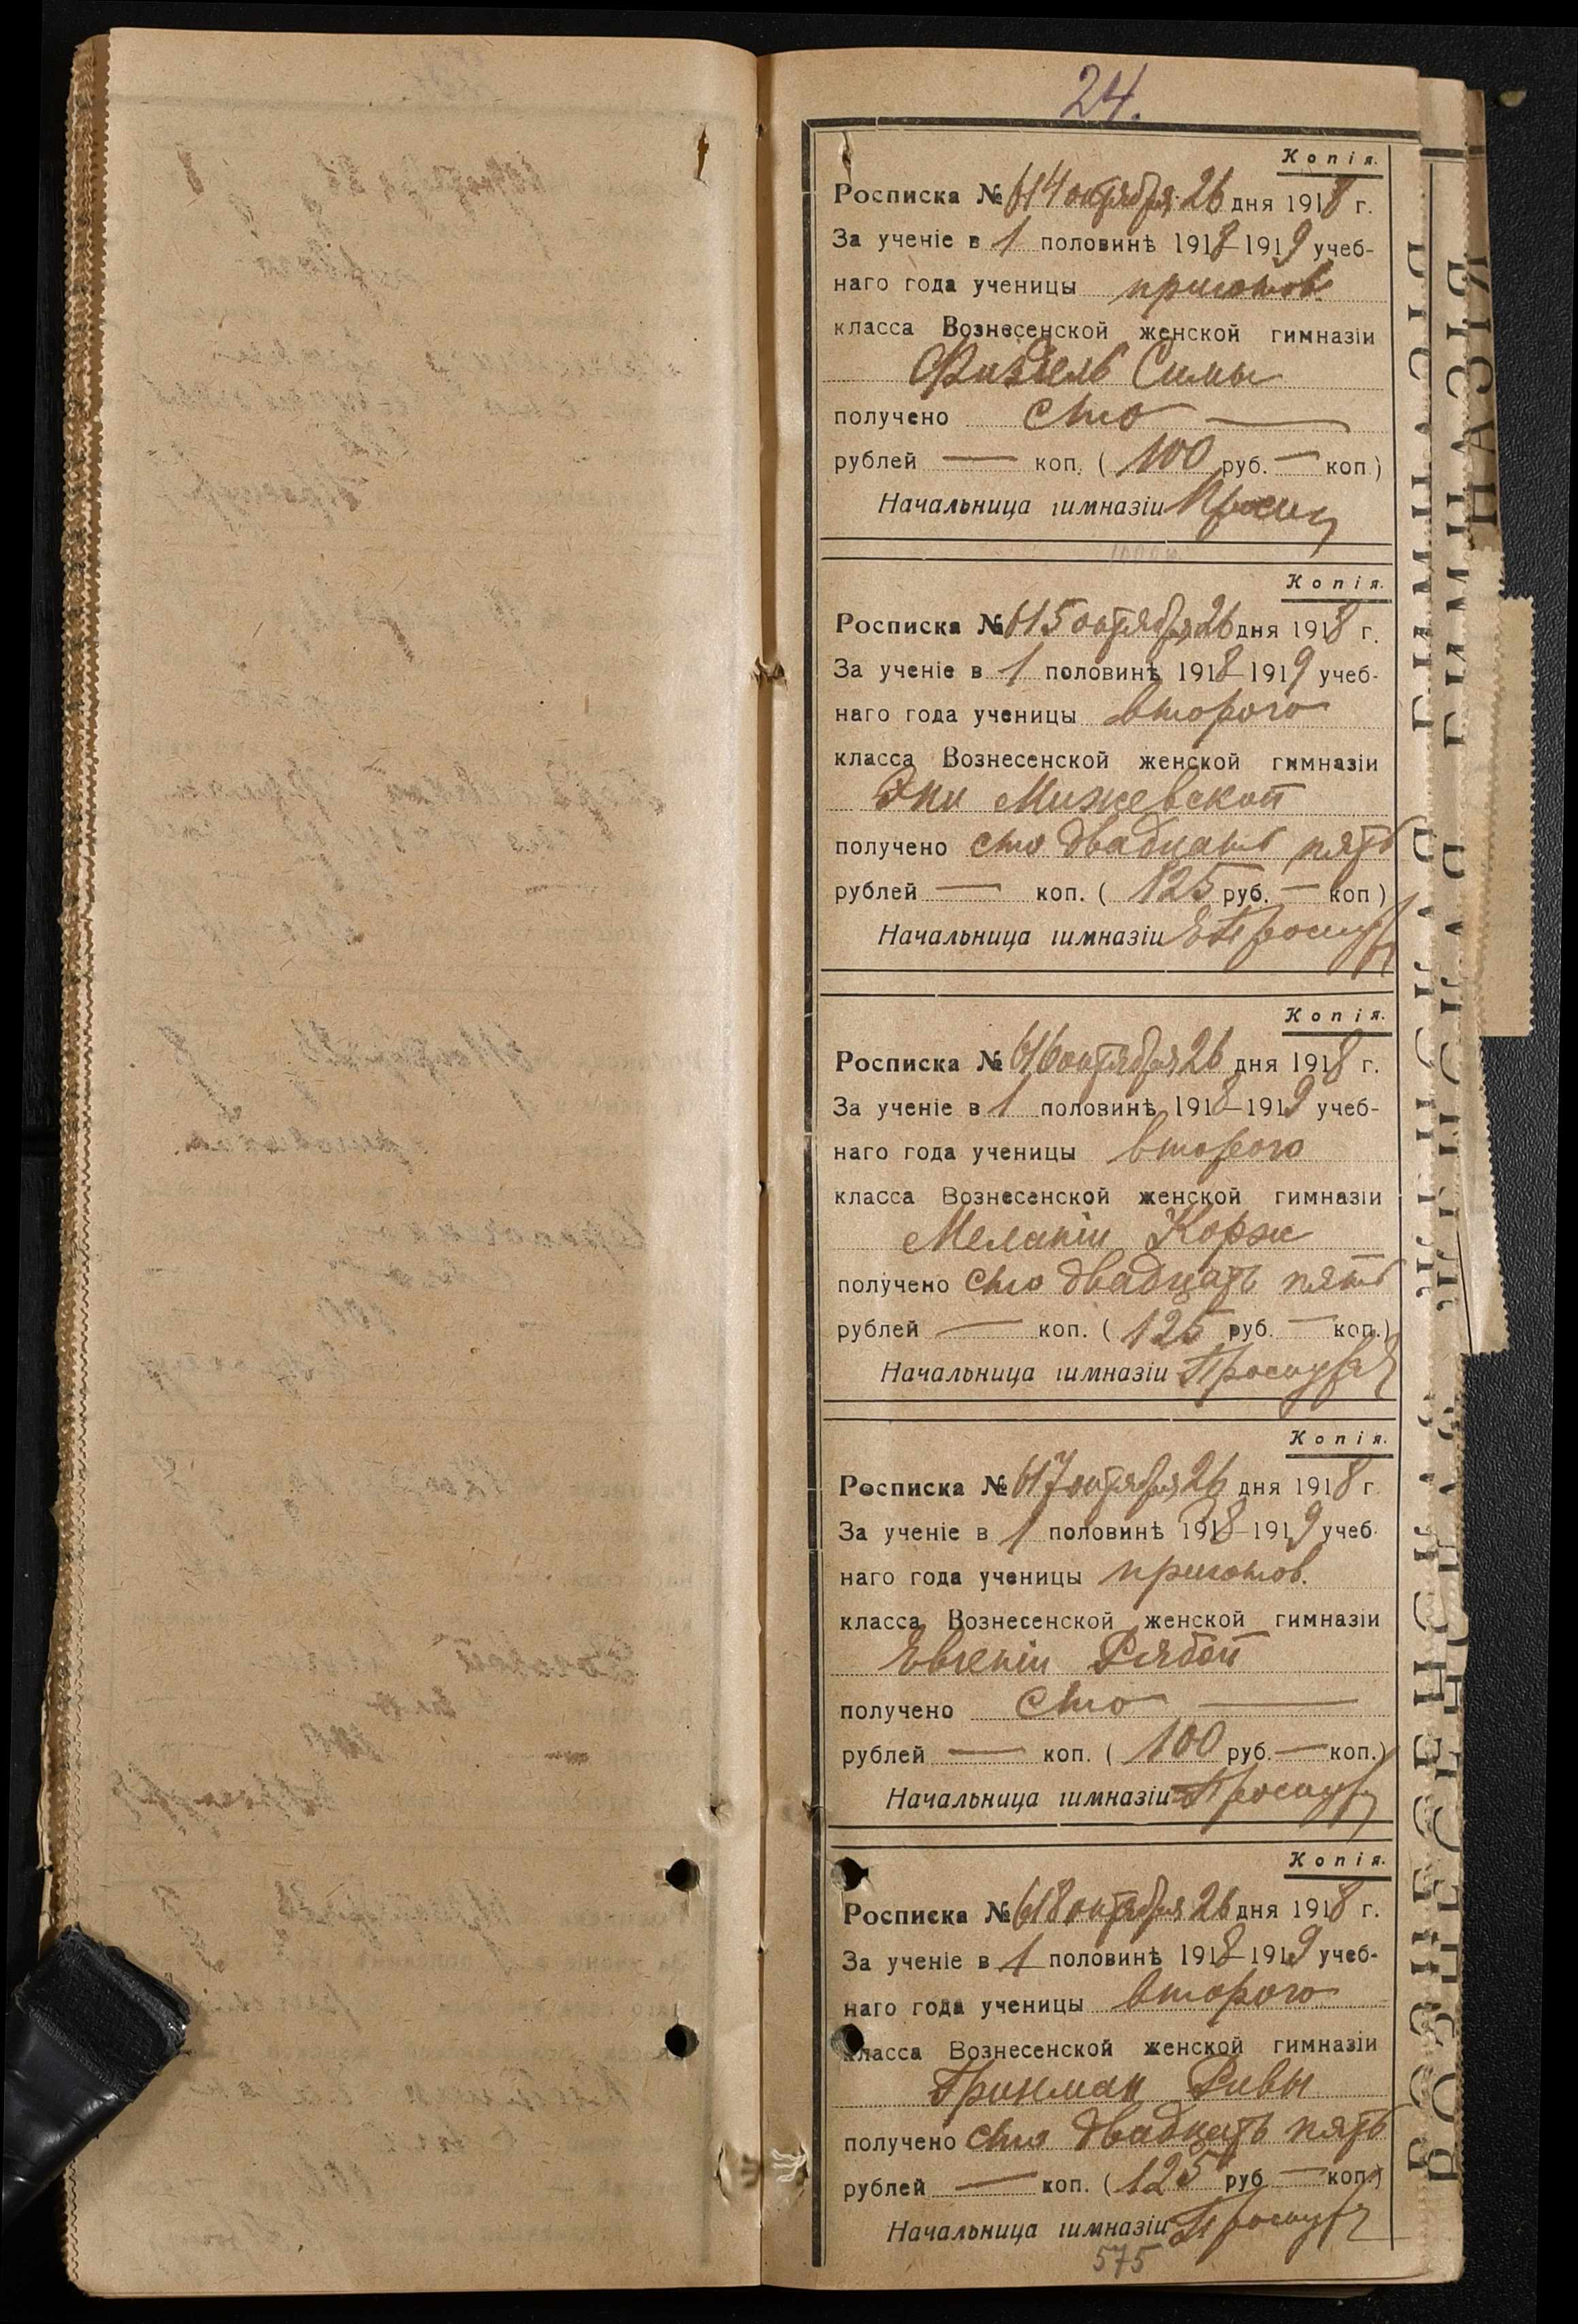 24.
Копія.
Росписка № 614 октября 26 дня 1918 г.
За ученіе в 1 половинѣ 1918-1919 учеб-
наго года ученицы приготов.
класса Вознесенской женской гимназіи
Симы
получено сто —
рублей — коп. (100 руб. — коп.)
Начальница гимназіи
Копія.
Росписка № 615 октября 26 дня 1918 г.
За ученіе в 1 половинѣ 1918-1919 учеб-
наго года ученицы второго
класса Вознесенской женской гимназіи
Мижевской
получено сто двадцать пять
рублей — коп. (125 руб. — коп)
Начальница гимназіи
Копія.
Росписка № 616 октября 26 дня 1918 г.
За ученіе в 1 половинѣ 1918-1919 учеб-
наго года ученицы второго
класса Вознесенской женской гимназіи
Меланіи Корж
получено сто двадцать пять
рублей — коп. (125 руб. — коп.)
Начальница гимназіи
Копія.
Росписка № 617 октября 26 дня 1918 г.
За ученіе в 1 половинѣ 1918-1919 учеб-
наго года ученицы приготов.
класса Вознесенской женской гимназіи
Евгеніи Рябой
получено сто —
рублей — коп. (100 руб. — коп.)
Начальница гимназіи
Копія.
Росписка № 618 октября 26 дня 1918 г.
За ученіе в 1 половинѣ 1918-1919 учеб-
наго года ученицы второго
класса Вознесенской женской гимназіи
Гринман Ривы
получено сто двадцать пять
рублей — коп. (125 руб — коп.)
Начальница гимназіи
575